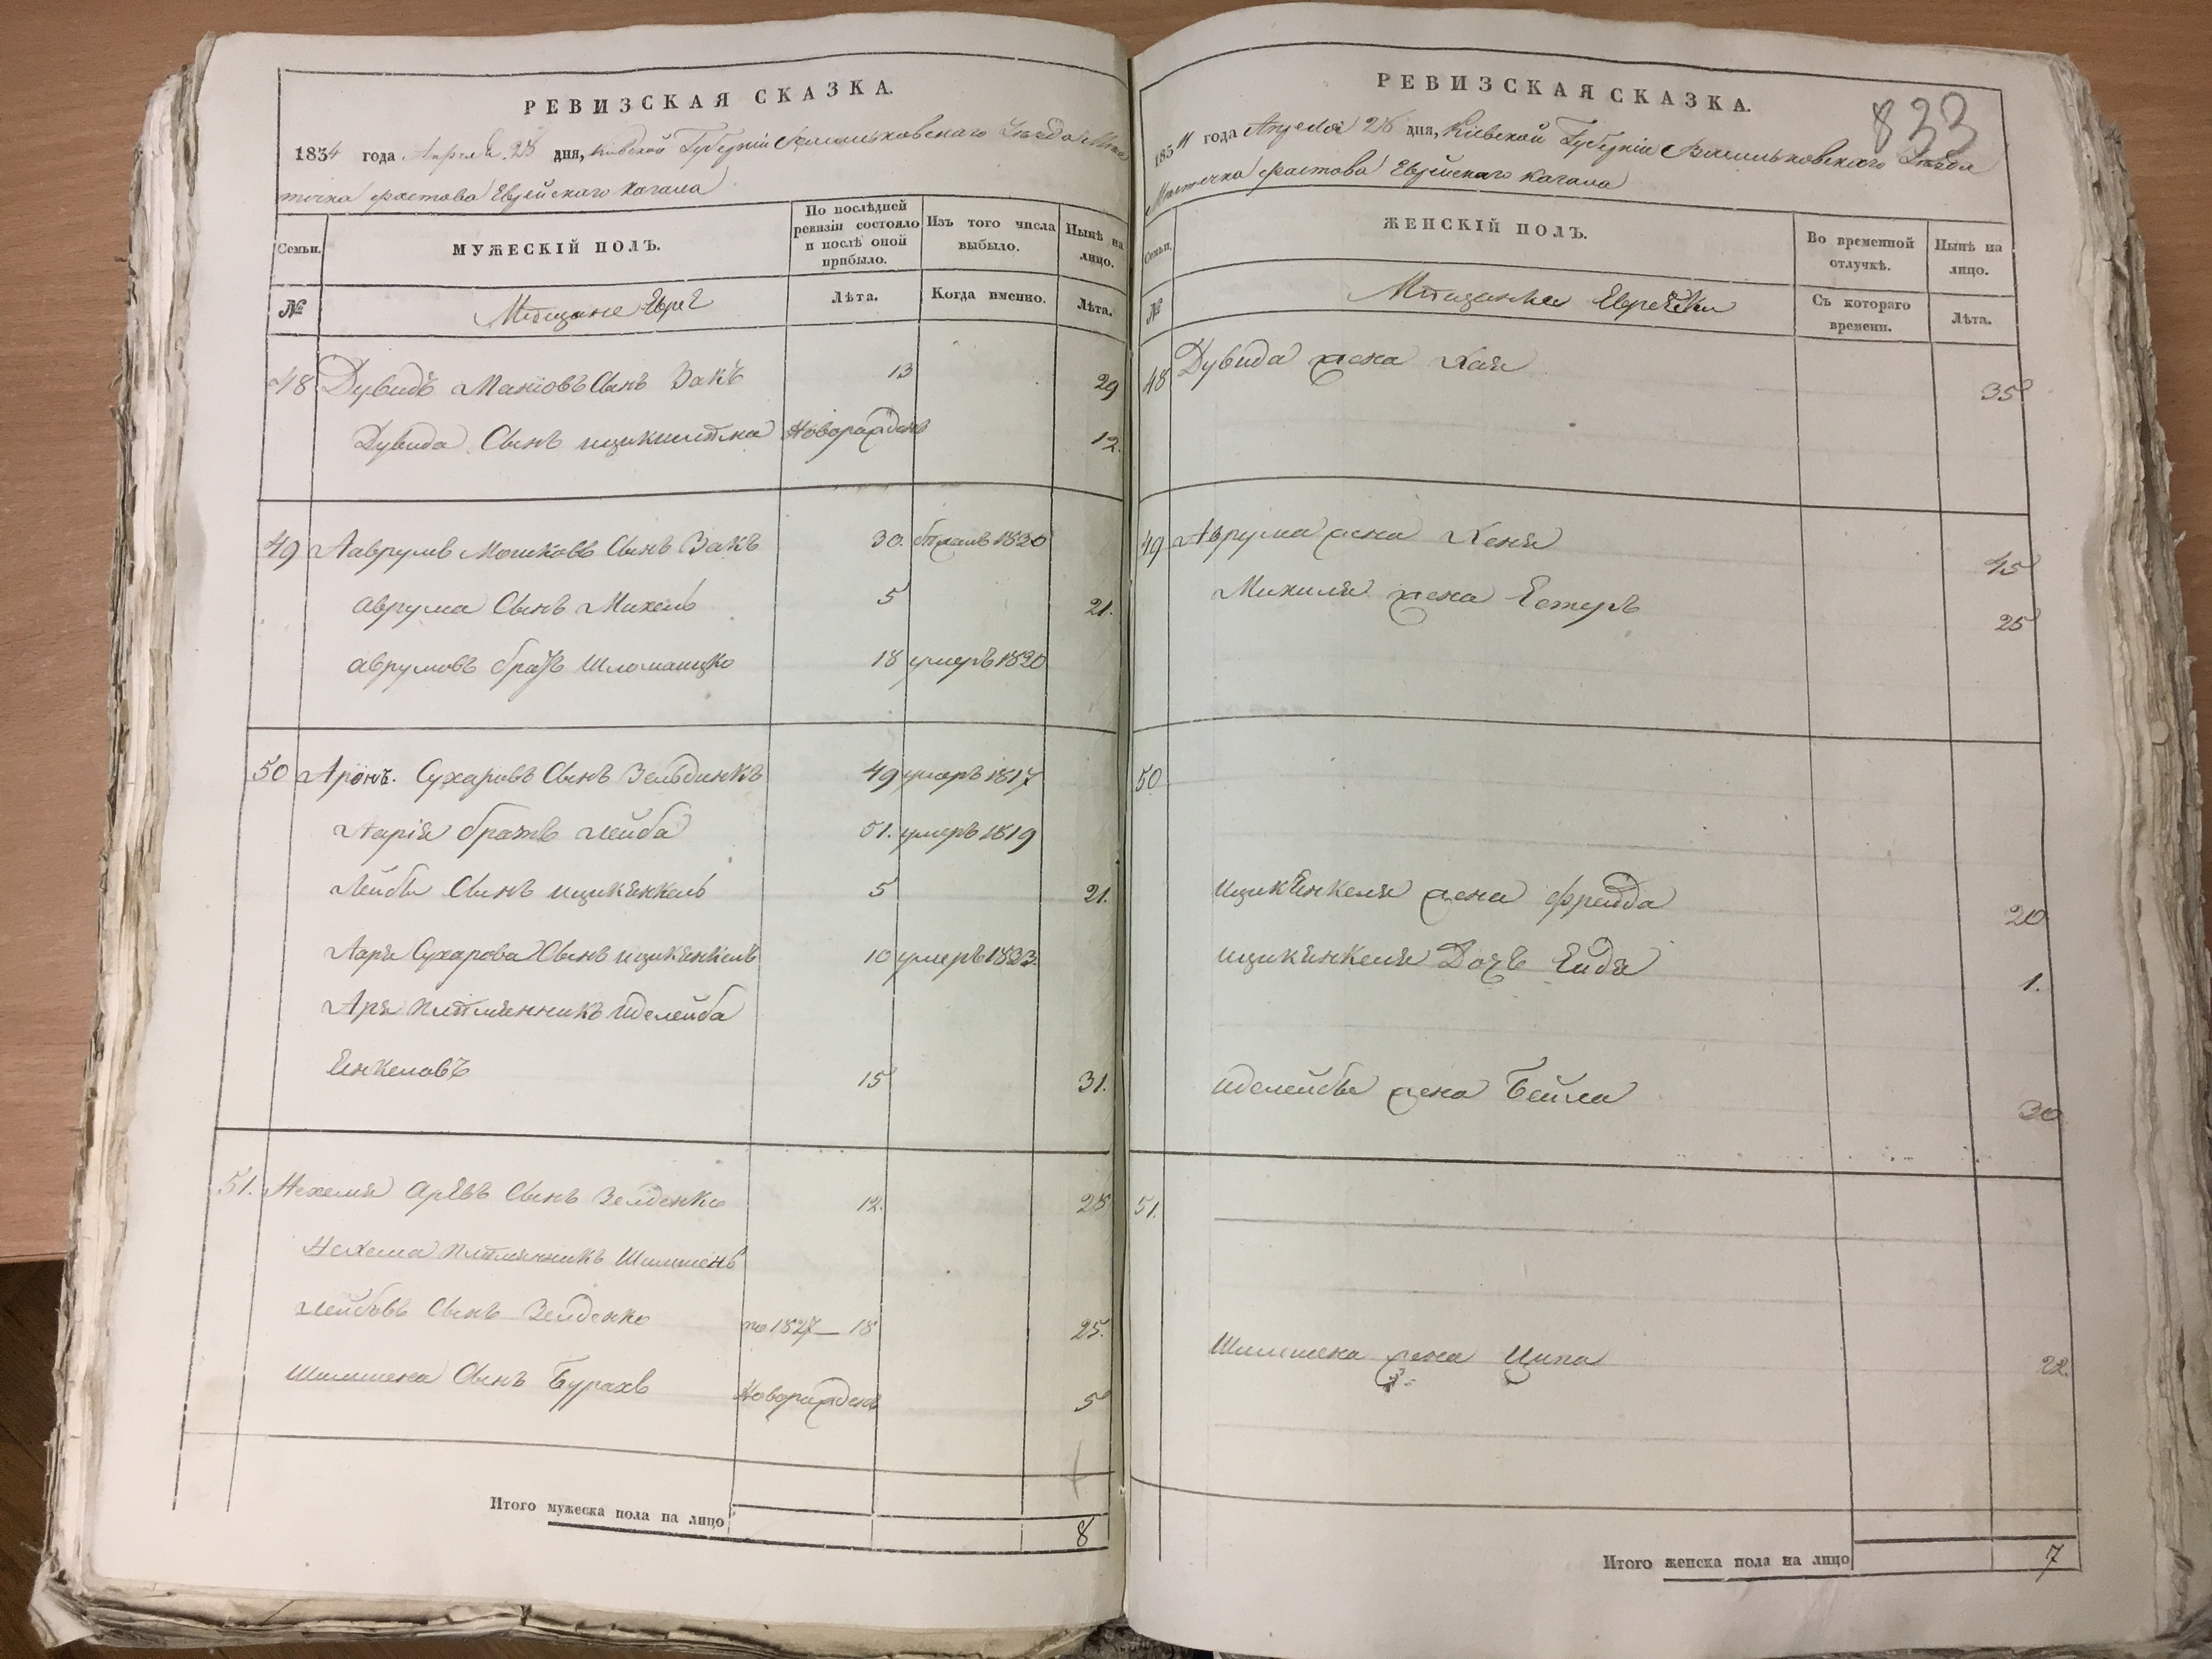 РЕВИЗСКАЯ СКАЗКА.
1834 года Апреля 28 дня, Киевской Губерніи Васильковскаго Уезда Мес
течка фастова Еврейскаго Кагала
Семьи.
МУЖЕСКІЙ ПОЛЪ.
По послѣдней ревизіи состояло и послѣ оной прибыло.
Изъ того числа выбыло.
Нынѣ на лицо.
№
Мѣщане Евреи
Лѣта.
Когда именно.
Лѣта.
48 Дувидъ Маніовъ Сынъ Закъ 13 29
Дувида Сынъ ицикшлѣма Новорожденъ 12.
49 Аврумъ Мошковъ Сынъ Закъ 30. 1830
аврума Сынъ Михель 5 21.
аврумовъ братъ Шломаицко 18 умеръ 1820
50 Аронъ. Сухаровъ Сынъ Зельдинкъ 49 умеръ 1817
Аарія братъ Лейба 51. умеръ 1819
Лейбы Сынъ ицикянкель 5 21.
Ааря Сухарова Сынъ ицикянкель 10 умеръ 1833.
Аря племянникъ Иделейба
Енкеловъ 15 31.
51. Нехемя Арявъ Сынъ Зелденко 12. 28
Нехема племянникъ Шлиміенъ
лейбовъ Сынъ Зелденко по 1827 — 18 25.
Шимшена Сынъ Бурахъ Новорожденъ 5
Итого мужеска пола на лицо 8
РЕВИЗСКАЯ СКАЗКА.
833
1834 года Апреля 28 дня, Кіевской Губерніи Васильковскаго Уезда
Местечка фастова Еврейскаго Кагала
Семьи.
ЖЕНСКІЙ ПОЛЪ.
Во временной отлучкѣ.
Нынѣ на лицо.
№
Мѣщанки Еврейки
Съ котораго времени.
Лѣта.
48 Дувида жена Хая 35
49 Аврума жена Хеня 45
Михиля жена Естеръ 25
50
ицикЕнкеля жена фрейда 20
ицикянкеля Дочъ Ейдя 1.
иделейбы жена Бейла 30
51.
Шимшена жена Ципа 22.
Итого женска пола на лицо 7